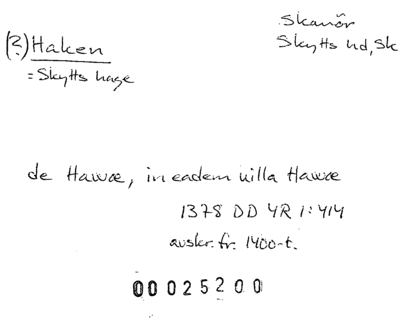 Skanör
(?) Haken
Skytts hd, Sk
= Skytts hage
de Hawæ, in eadem uilla Hawæ
1378 DD 4R 1:414
avskr. fr. 1400-t.
00025200